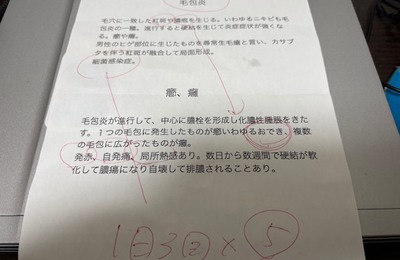 毛包炎
毛穴に一致した紅斑や膿疱を生じる。いわゆるニキビも毛
包炎の一種。進行すると硬結を生じて炎症症状が強くな
る。癤や癰。
男性のヒゲ部位に生じたものを尋常生毛瘡と言い、カサブ
タを伴う紅斑が融合して局面形成。
細菌感染症。
癤、癰
毛包炎が進行して、中心に膿栓を形成し化膿性腫脹をきた
す。1つの毛包に発生したものが癤いわゆるおでき、複数
の毛包に広がったものが癰。
発赤、自発痛、局所熱感あり。数日から数週間で硬結が軟
化して膿瘍になり自壊して排膿されることあり。
1日3回×5